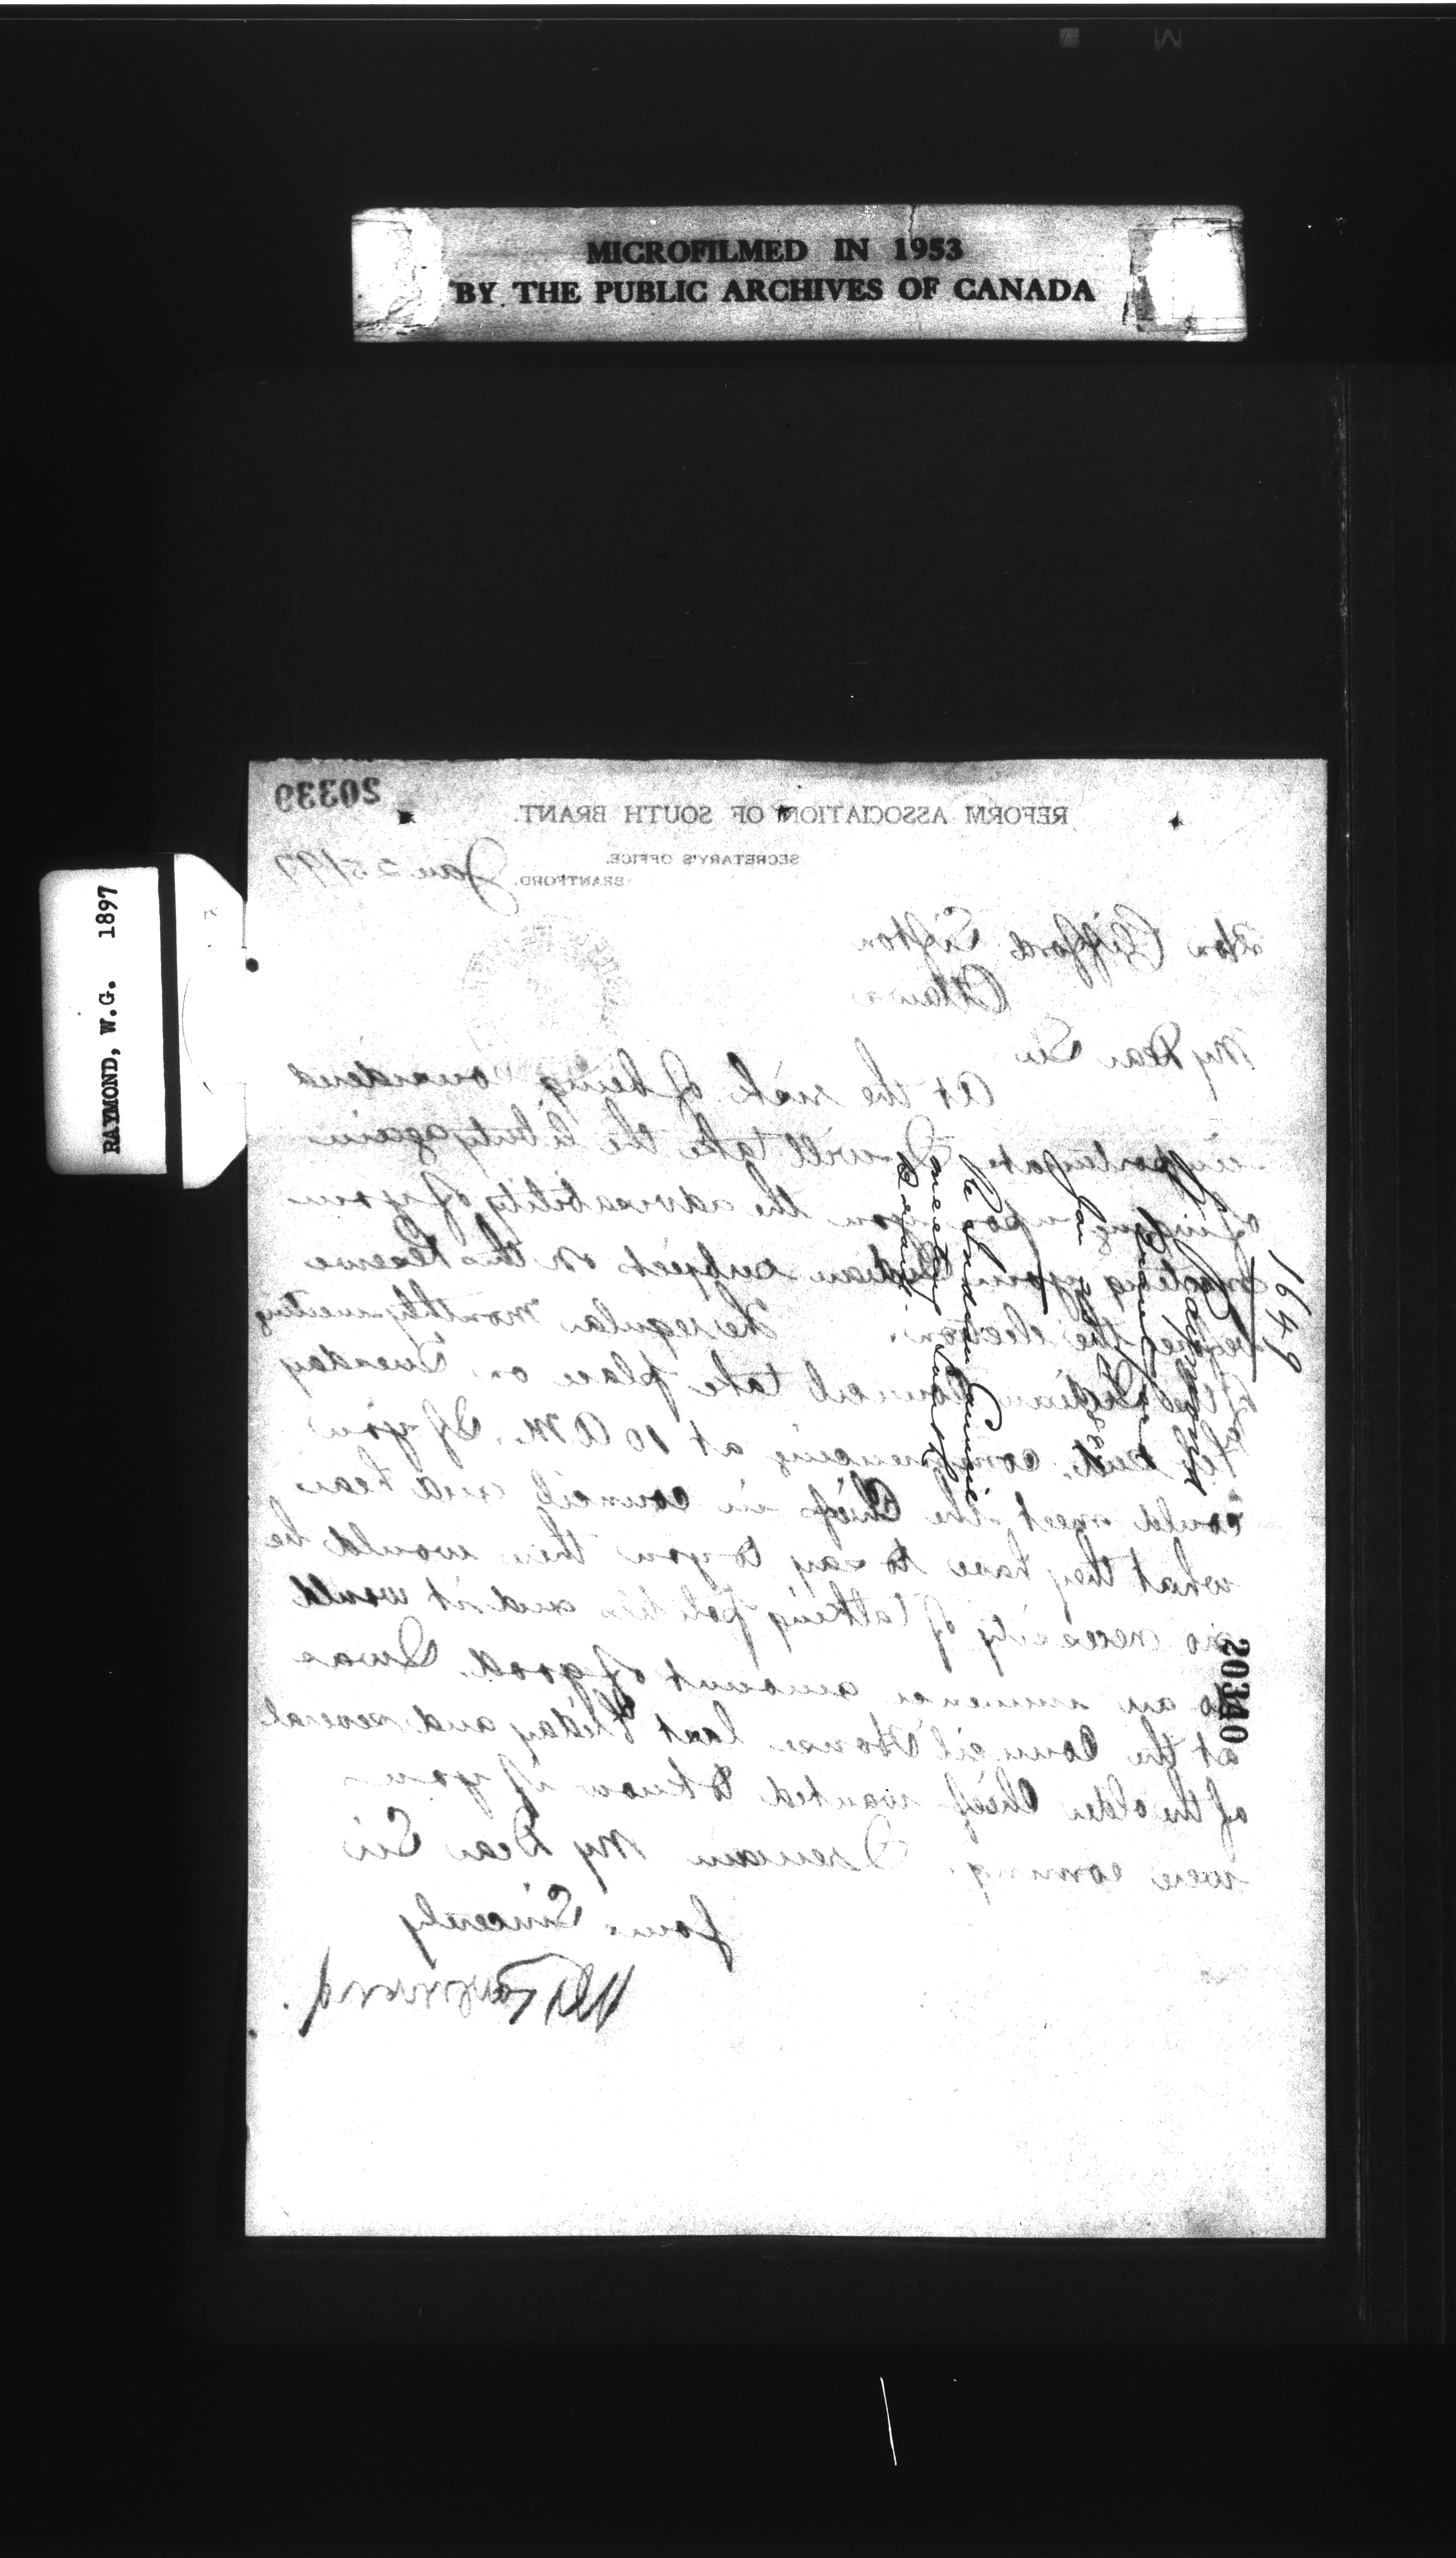 MICROFILMED IN 1953
BY THE PUBLIC ARCHIVES OF CANADA
RAYMOND, W.G. 1897
20339
REFORM ASSOCIATION OF SOUTH BRANT.
SECRETARY'S OFFICE.
BRANTFORD, Jan 25/97
Hon Clifford Sifton
Ottawa
My Dear Sir
At the risk of being considered
importunate I will take the liberty again
of urging upon you the advisability of your
meeting your Indian subjects on this Reserve
before the election. The regular monthly meeting
of the Indian Council take place on Tuesday
Feb 2nd. commencing at 10 A.M. If you
could meet the Chiefs in council and hear
what they have to say to you there would be
no necessity of talking politics and it would
do an immense amount of good. I was
at the Council House last Friday and several
of the older Chiefs wanted to know if you
were coming. I remain My Dear Sir
Yours Sincerely
W G Raymond.
1649
Raymond
Brantford
Jan 25
Re Indian Council
meeting
Reserve.
20340